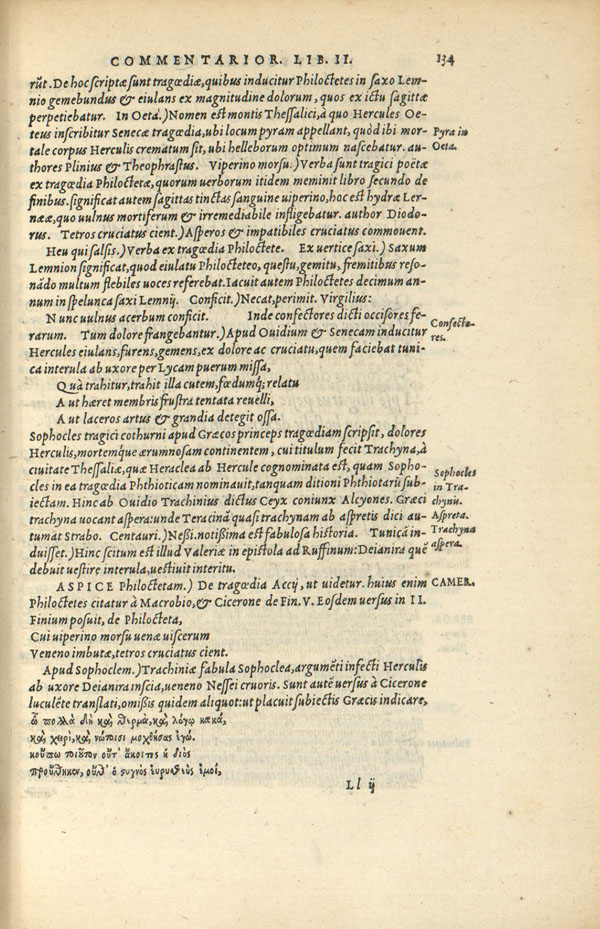 COMMENTARIOR. LIB. II. 134
rūt. De hoc scriptæ sunt tragœdiæ, quibus inducitur Philoctetes in saxo Lem-
nio gemebundus & eiulans ex magnitudine dolorum, quos ex ictu sagittæ
perpetiebatur. In Oeta.) Nomen est montis Thessalici, à quo Hercules Oe-
teus inscribitur Senecæ tragœdia, ubi locum pyram appellant, quòd ibi mor-
Pyra in
Oeta.
tale corpus Herculis crematum sit, ubi helleborum optimum nascebatur. au-
thores Plinius & Theophrastus. Viperino morsu.) Verba sunt tragici poëtæ
ex tragœdia Philoctetæ, quorum uerborum itidem meminit libro secundo de
finibus. significat autem sagittas tinctas sanguine uiperino, hoc est hydræ Ler-
nææ, quo uulnus mortiferum & irremediabile infligebatur. author Diodo-
rus. Tetros cruciatus cient.) Asperos & impatibiles cruciatus commouent.
Heu qui salsis.) Verba ex tragœdia Philoctete. Ex uertice saxi.) Saxum
Lemnion significat, quod eiulatu Philocteteo, questu, gemitu, fremitibus reso-
nādo multum flebiles uoces referebat. Iacuit autem Philoctetes decimum an-
num in spelunca saxi Lemnij. Conficit.) Necat, perimit. Virgilius:
Nunc uulnus acerbum conficit. Inde confectores dicti occisores fe-
Confecto-
res.
rarum. Tum dolore frangebantur.) Apud Ouidium & Senecam inducitur
Hercules eiulans, furens, gemens, ex dolore ac cruciatu, quem faciebat tuni-
ca interula ab uxore per Lycam puerum missa,
Quà trahitur, trahit illa cutem, fœdumq; relatu
Aut hæret membris frustra tentata reuelli,
Aut laceros artus & grandia detegit ossa.
Sophocles tragici cothurni apud Græcos princeps tragœdiam scripsit, dolores
Herculis, mortemque ærumnosam continentem, cui titulum fecit Trachyna, à
ciuitate Thessaliæ, quæ Heraclea ab Hercule cognominata est, quam Sopho-
cles in ea tragœdia Phthioticam nominauit, tanquam ditioni Phthiotarū sub-
Sophocles
in Tra-
chynijs.
iectam. Hinc ab Ouidio Trachinius dictus Ceyx coniunx Alcyones. Græci
trachyna uocant aspera: unde Teracina quasi trachynam ab aspretis dici au-
Aspreta.
tumat Strabo. Centauri.) Nessi. notissima est fabulosa historia. Tunicā in-
Trachyna
aspera.
duisset.) Hinc scitum est illud Valeriæ in epistola ad Ruffinum: Deianira quē
debuit uestire interula, uestiuit interitu.
ASPICE Philoctetam.) De tragœdia Accij, ut uidetur. huius enim
CAMER.
Philoctetes citatur à Macrobio, & Cicerone de Fin. V. Eosdem uersus in II.
Finium posuit, de Philocteta,
Cui uiperino morsu uenæ uiscerum
Veneno imbutæ, tetros cruciatus cient.
Apud Sophoclem.) Trachiniæ fabula Sophoclea, argumēti infecti Herculis
ab uxore Deianira inscia, ueneno Nessei cruoris. Sunt autē uersus à Cicerone
luculēte translati, omißis quidem aliquot: ut placuit subiectis Græcis indicare,
ὦ πολλὰ δὴ καὶ θερμὰ, καὶ λόγῳ κακὰ,
καὶ χερὶ, καὶ νώτοισι μοχθήσας ἐγώ.
κοὔπω τοιοῦτον οὔτ' ἄκοιτις ἡ διὸς
προὔθηκεν, οὔθ' ὁ στυγνὸς εὐρυσθεὺς ἐμοὶ,
Ll ij